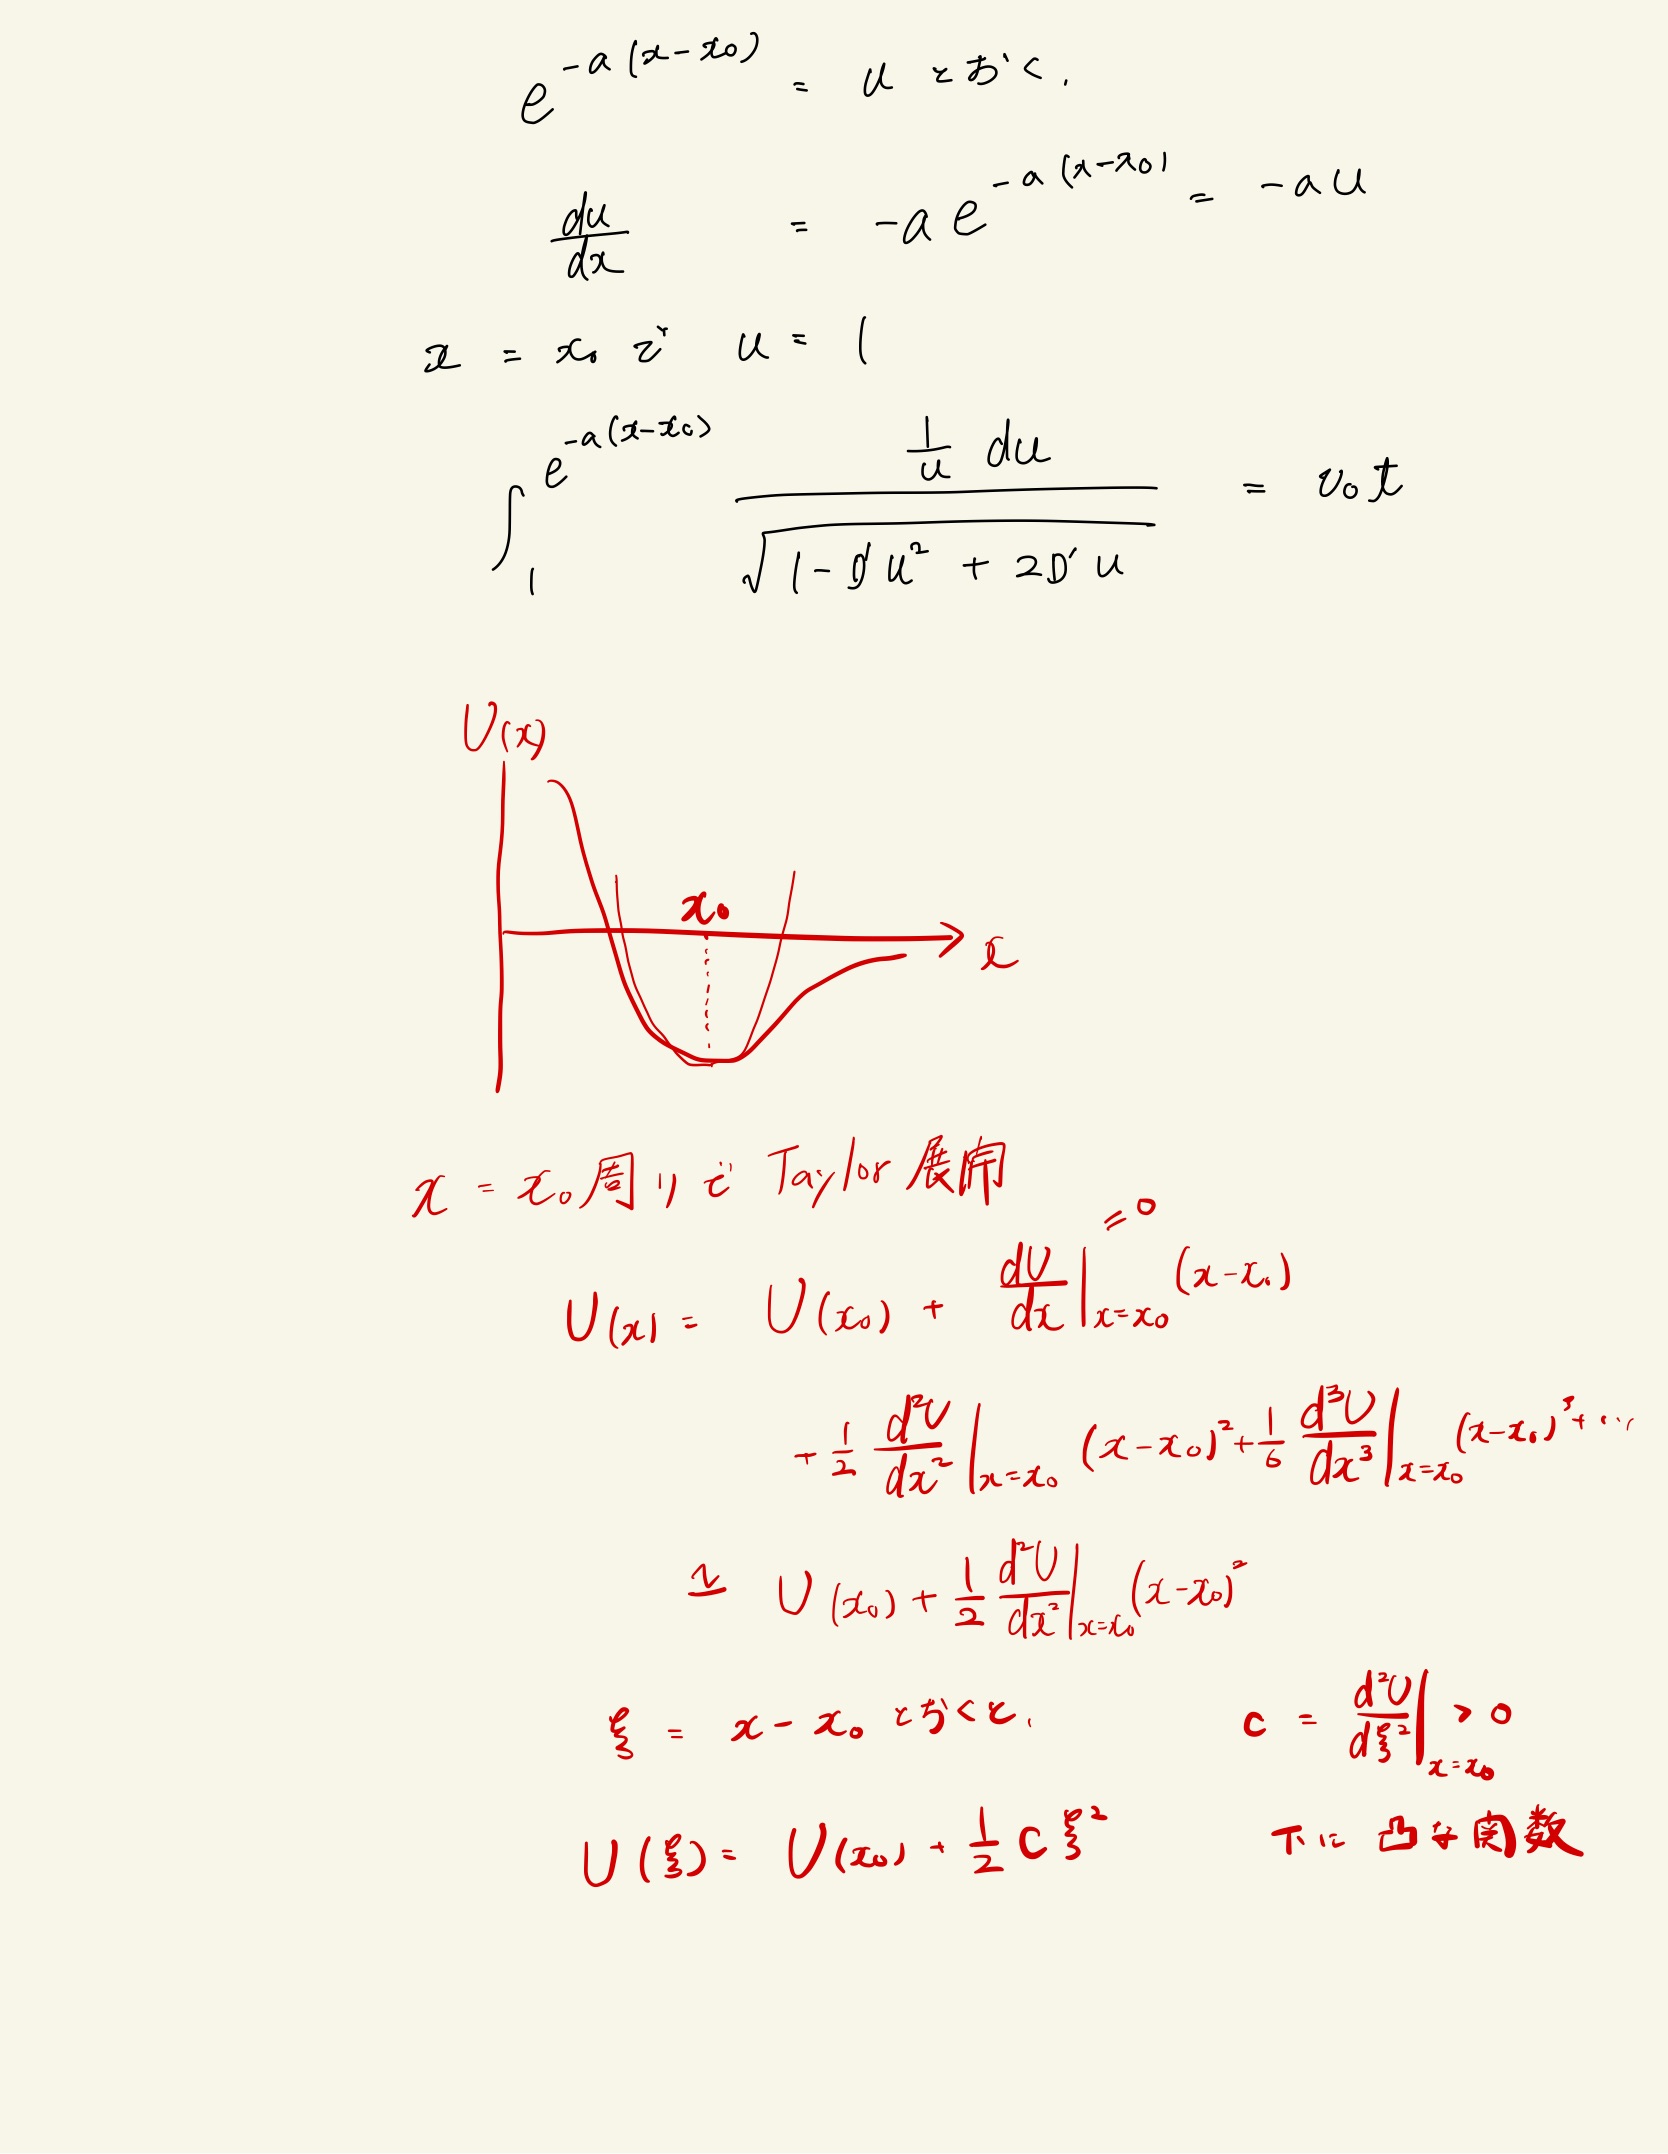 e^{-a(x-x₀)} = u とおく.
du/dx = -a e^{-a(x-x₀)} = -au
x = x₀ で u = 1
∫_1^{e^{-a(x-x₀)}} (1/u du)/√(1-D'u² + 2D'u) = v₀t
U(x)
x₀
x
x = x₀周りで Taylor 展開
= 0
U(x) = U(x₀) + dU/dx|_{x=x₀} (x-x₀)
+ 1/2 d²U/dx²|_{x=x₀} (x-x₀)² + 1/6 d³U/dx³|_{x=x₀} (x-x₀)³ + ...
≃ U(x₀) + 1/2 d²U/dx²|_{x=x₀} (x-x₀)²
ξ = x - x₀ とおくと, c = d²U/dξ²|_{x=x₀} > 0
U(ξ) = U(x₀) + 1/2 c ξ² 下に凸な関数